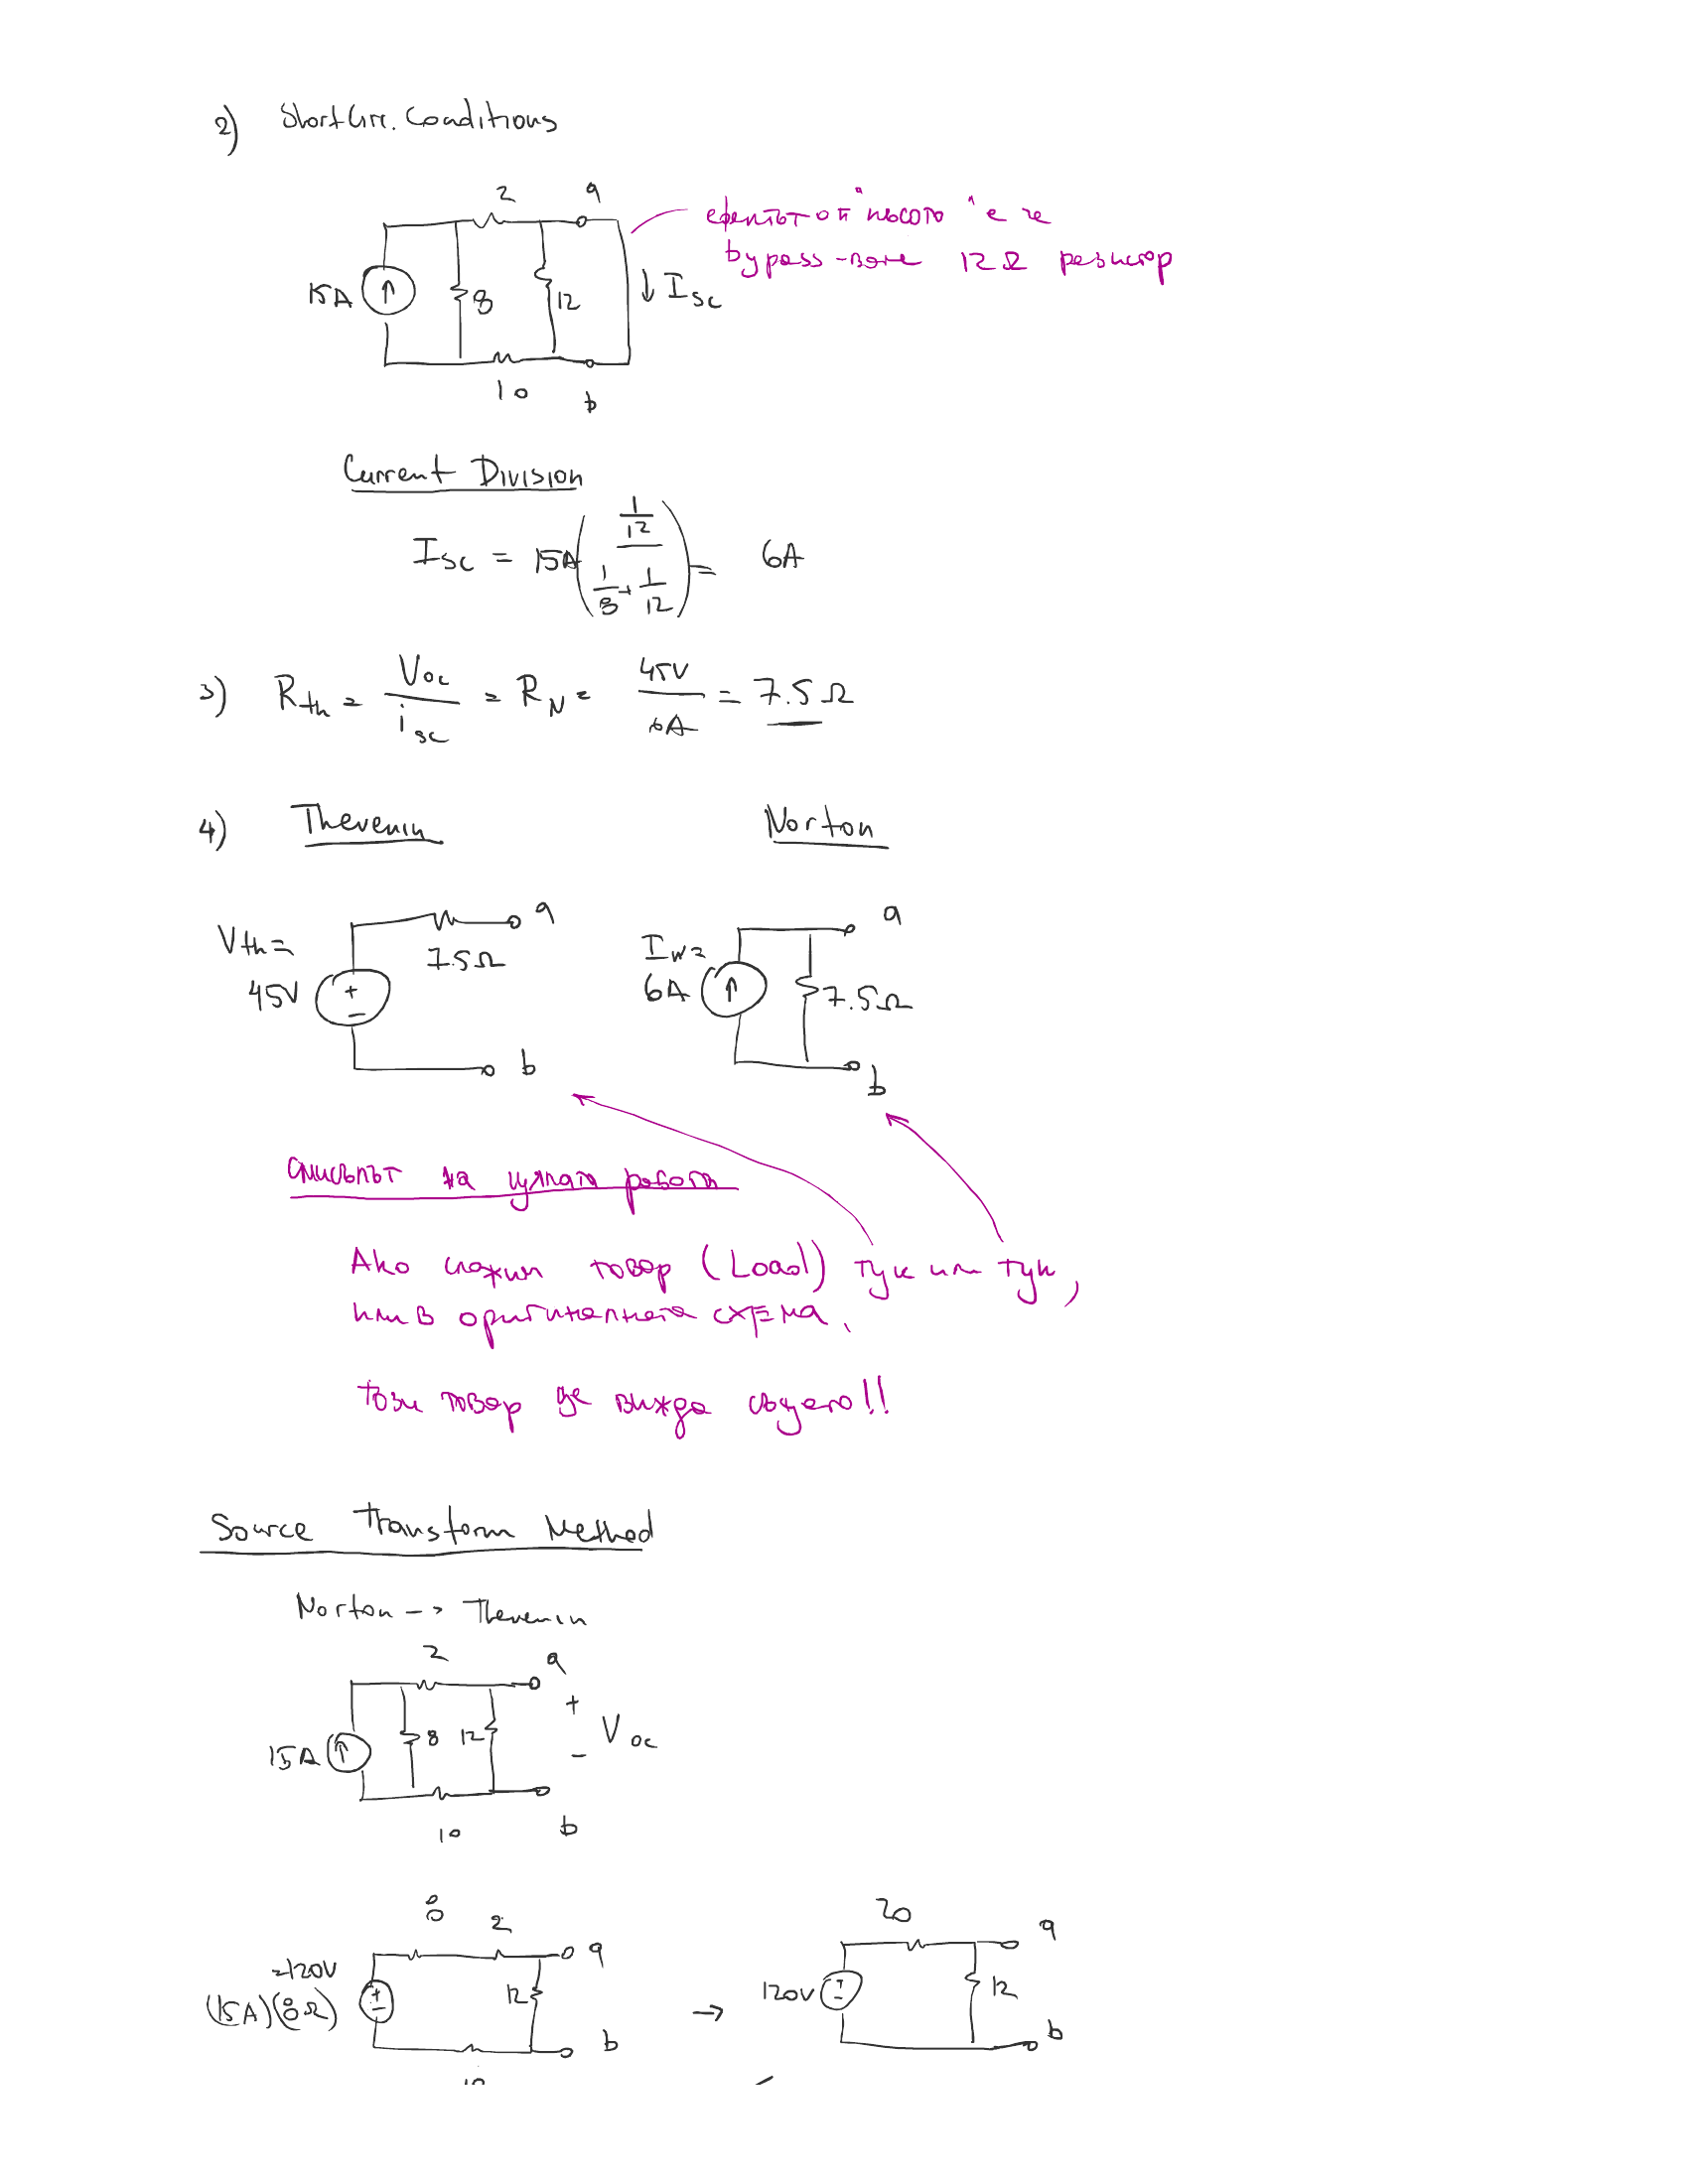 2) Short Circ. Conditions
2 a
15A 8 12 ↓ Isc
10 b
ефектът от "късото" е че
bypass-ваме 12Ω резистор
Current Division
Isc = 15A ( (1/12) / (1/8 + 1/12) ) = 6A
3) Rth = Voc / isc = RN = 45V / 6A = 7.5 Ω
4) Thevenin Norton
Vth = 45V 7.5Ω a b
IN = 6A 7.5Ω a b
Смисълът на цялата работа
Ако сложим товар (Load) тук или тук,
или в оригиналната схема,
този товар ще вижда същото!!
Source Transform Method
Norton -> Thevenin
2 a
15A 8 12 + Voc -
10 b
8 2 a
=120V
(15A)(8Ω) + - 12 b
10
→
20 a
120V + - 12 b